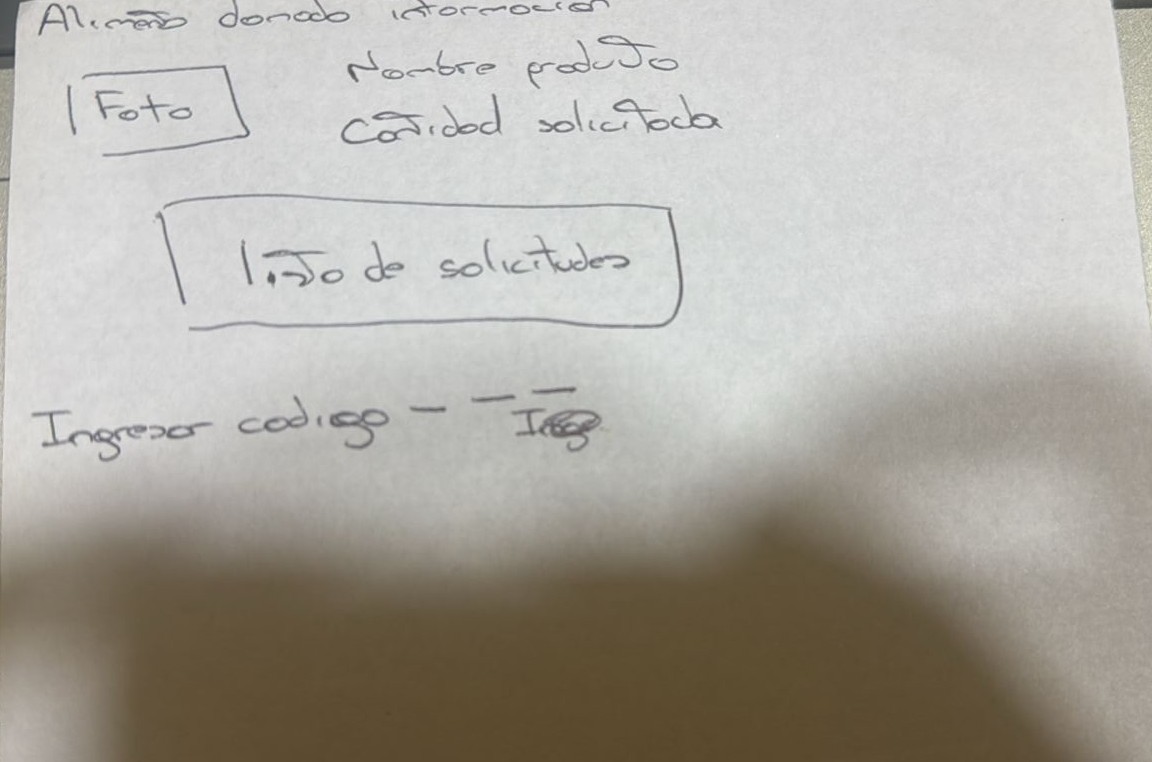 Alimento donado informacion
Nombre producto
Foto
Cantidad solicitada
lista de solicitudes
Ingresar codigo - - -